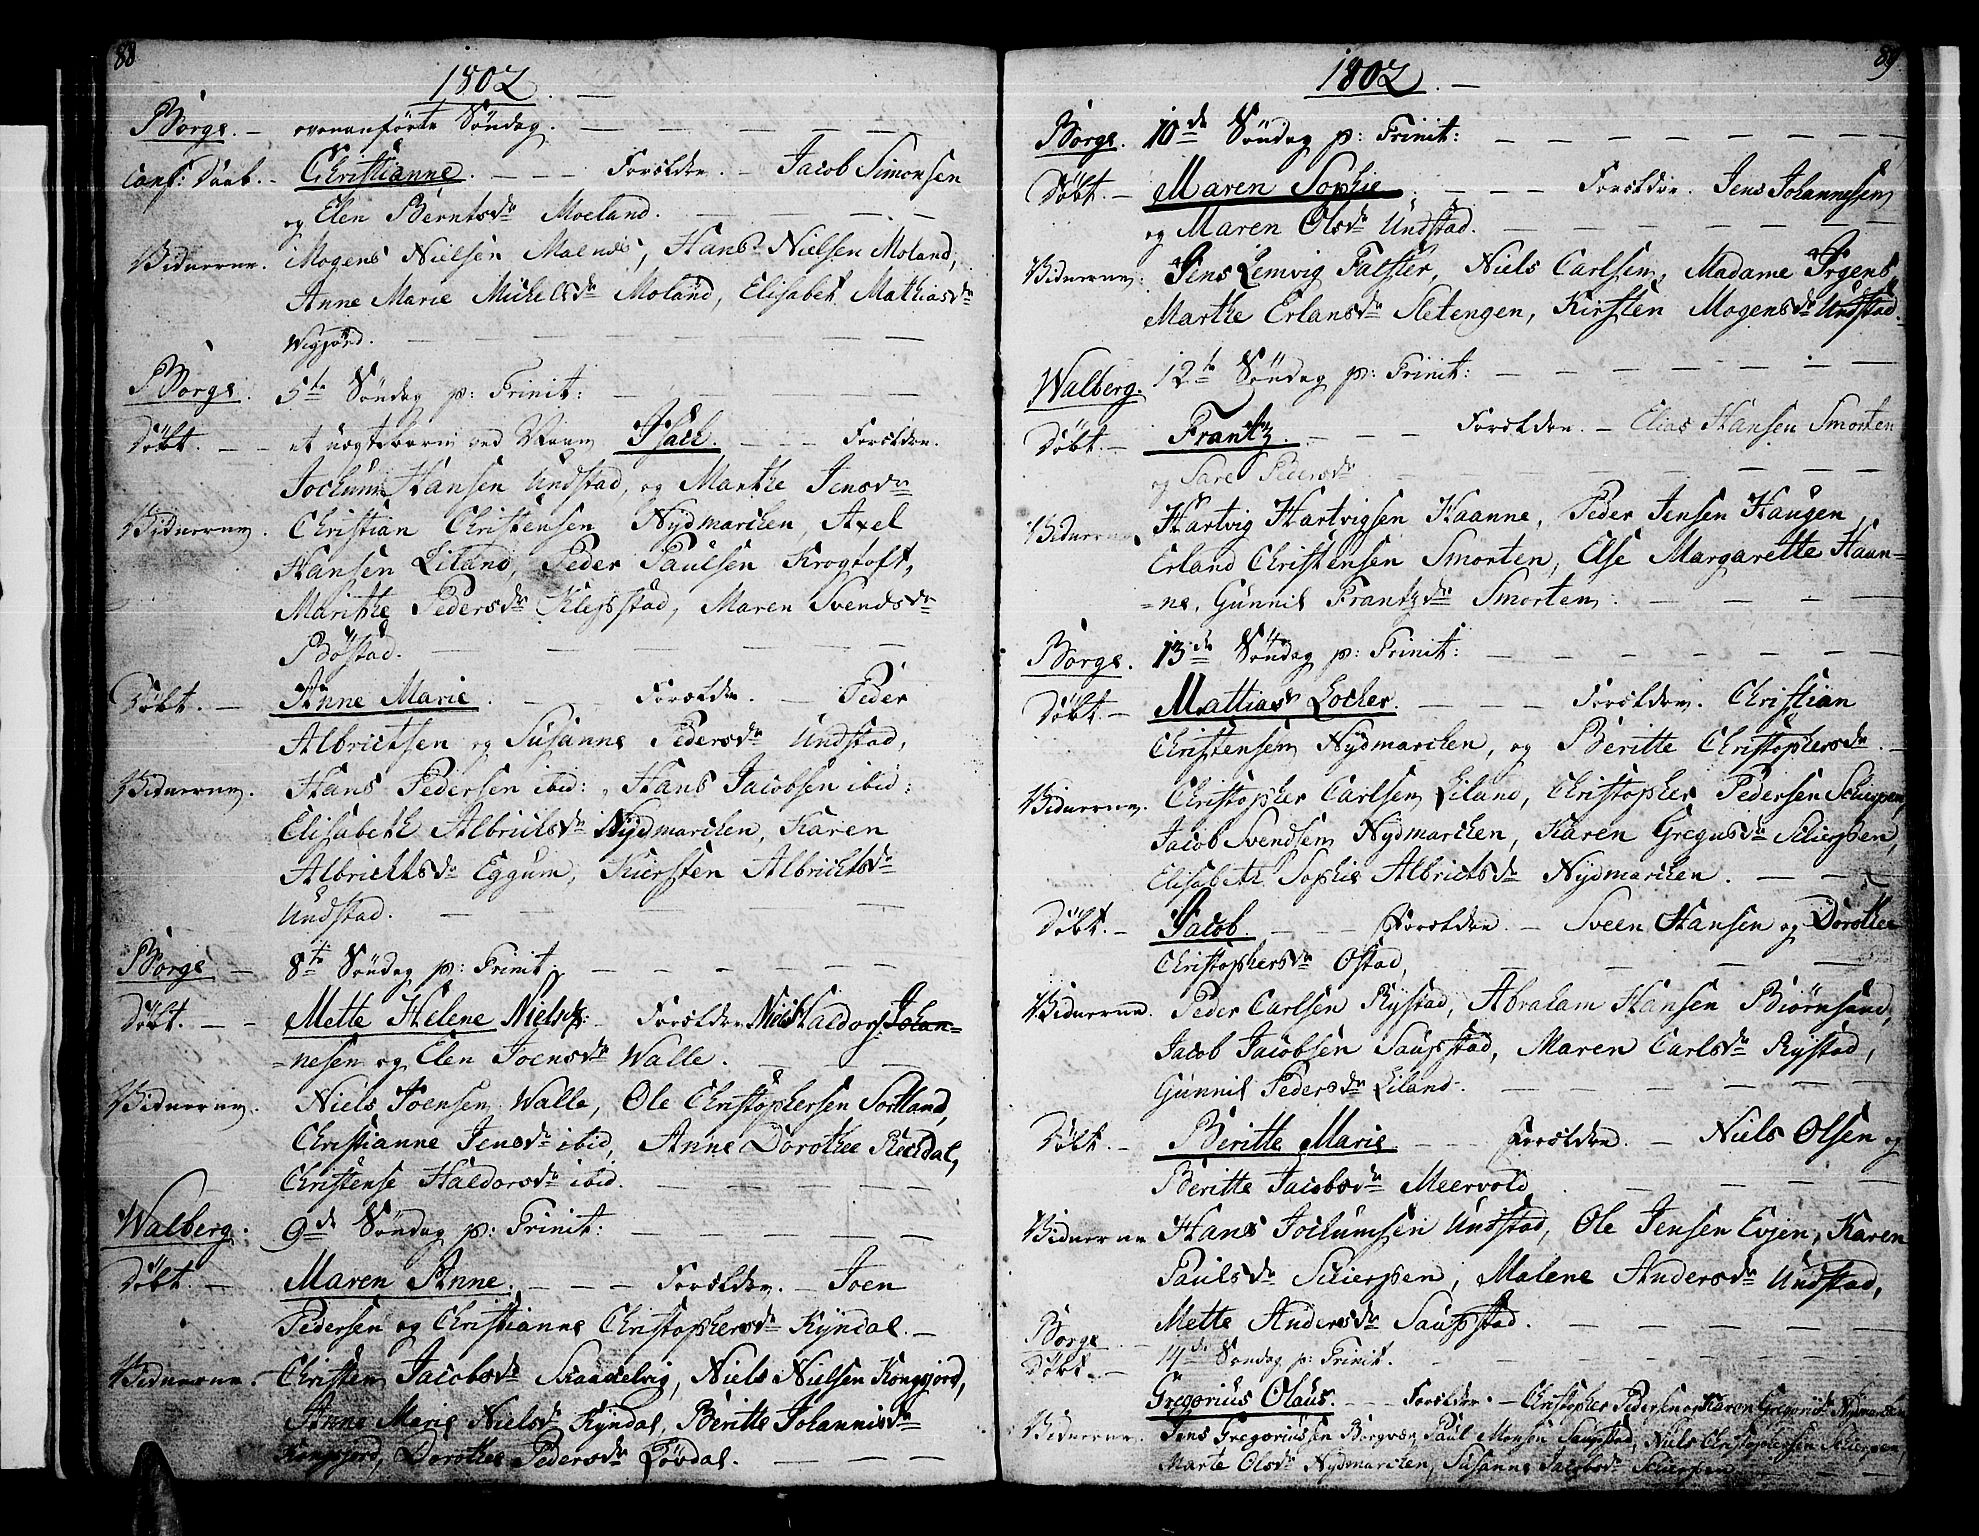 88
1802. —
Borge. — ovenanförte Söndag. — — — —
Conf: Daab. — Christianne. — — — Forældre. — Jacob Simonsen
og Elen Berntsdr Moeland. — — — —
Vidnerne. Mogens Nielsen Malnes, Hans Nielsen Moland,
Anne Marie Michelsdr Moland, Elisabet Mathiasdr
Wigfjord. — — — — — —
Borge. 5te Söndag p: Trinit: — — — —
Döbt. — — et uægtebarn ved Navn Isach. — — Forældre.
Jochum Hansen Undstad, og Marthe Jensdr
Vidnerne. Christian Christensen Nydmarchen, Axel
Hansen Liland, Peder Paulsen Krogtoft,
Marithe Pedersdr Klepstad, Maren Svendsdr
Böstad. — — — — —
Döbt. — Anne Marie. — Forældre. — Peder
Albrictsen og Susanne Pedersdr Undstad,
Vidnerne. Hans Pedersen ibid:, Hans Jacobsen ibid:
Elisabeth Albrictsdr Nydmarchen, Karen
Albrichtsdr Eggum, Kiersten Albrichtsdr
Undstad. — — — — —
Borge — 8te Söndag p: Trinit. — — — —
Döbt. — — Mette Helene Nielsdr: — Forældre Niels Haldors Johan=
=nesen og Elen Joensdr Walle. — — —
Vidnerne. Niels Joensen Walle, Ole Christophersen Sortland,
Christianne Jensdr ibid, Anne Dorothe Rechdal,
Christense Haldorsdr ibid. — — — —
Walberg. 9de Söndag p: Trinit: — — — —
Döbt. — Maren Anne. — — — Forældre. — Joen
Pedersen og Christianne Christophersdr Kyndal. —
Vidnerne. Christen Jacobsdr Skaadelvig, Niels Nielsen Kongsjord,
Anne Marie Nielsdr Kyndal, Beritte Johannisdr
Kongsjord, Dorothe Pedersdr Lövdal. — — —
89
1802. —
Borge. 10de Söndag p: Trinit: — — — — —
Döbt. — Maren Sophie — — — Forældre. Jens Johannessen
og Maren Olsdr Undstad. — — — — —
Vidnerne. Jens Lemvig Falster, Niels Carlsen, Madame Irgens,
Marthe Erlansdr Sletengen, Kirsten Mogensdr Undstad.
Walberg. 12te Söndag p: Trinit: — — — — —
Döbt. — Frantz. — — — Forældre. — Elias Hansen Smorten
og Sare Pedersdr — — — — —
Vidnerne. Hartvig Hartvigsen Haanne, Peder Jensen Haugen,
Erland Christensen Smorten, Else Margarette Haan=
=ne, Gunnil Frantzdr Smorten. — — —
Borge. 13de Söndag p: Trinit: — — — — —
Döbt. — Mattias Locher. — — — Forældre. Christian
Christensen Nydmarchen, og Beritte Christophersdr. —
Vidnerne. Christopher Carlsen Liland, Christopher Pedersen Schierpen,
Jacob Svendsen Nydmarchen, Karen Gregusdr Schierpen,
Elisabeth Sophie Albrictsdr Nydmarchen. — — —
Döbt. — Jacob. — — — Forældre. — Sveen Hansen og Dorothe
Christophersdr Ostad, — — — —
Vidnerne. Peder Carlsen Rystad, Abraham Hansen Biörnsand,
Jacob Jacobsen Saupstad, Maren Carlsdr Rystad,
Gunnil Pedersdr Liland. — — — — —
Döbt. — Beritte Marie — — Forældre. — Niels Olsen og
Beritte Jacobsdr Meervold — — — —
Vidnerne Hans Jochumsen Undstad, Ole Jensen Evjen, Karen
Paulsdr Schierpen, Malene Andersdr Undstad,
Mette Andersdr Saupstad. — — — —
Borge — 14de Söndag p: Trinit. — — — —
Döbt. — Gregorius Olaus. — — Forældre. — Christopher Pedersen og Karen Gregoriidr Nydmarchen
Vidnerne. Jens Gregoriussen Borgvær, Paul Monsen Saupstad, Niels Christophersen Schierpen
Marte Olsdr Nydmarchen, Susanne Jacobsdr Schierpen — —